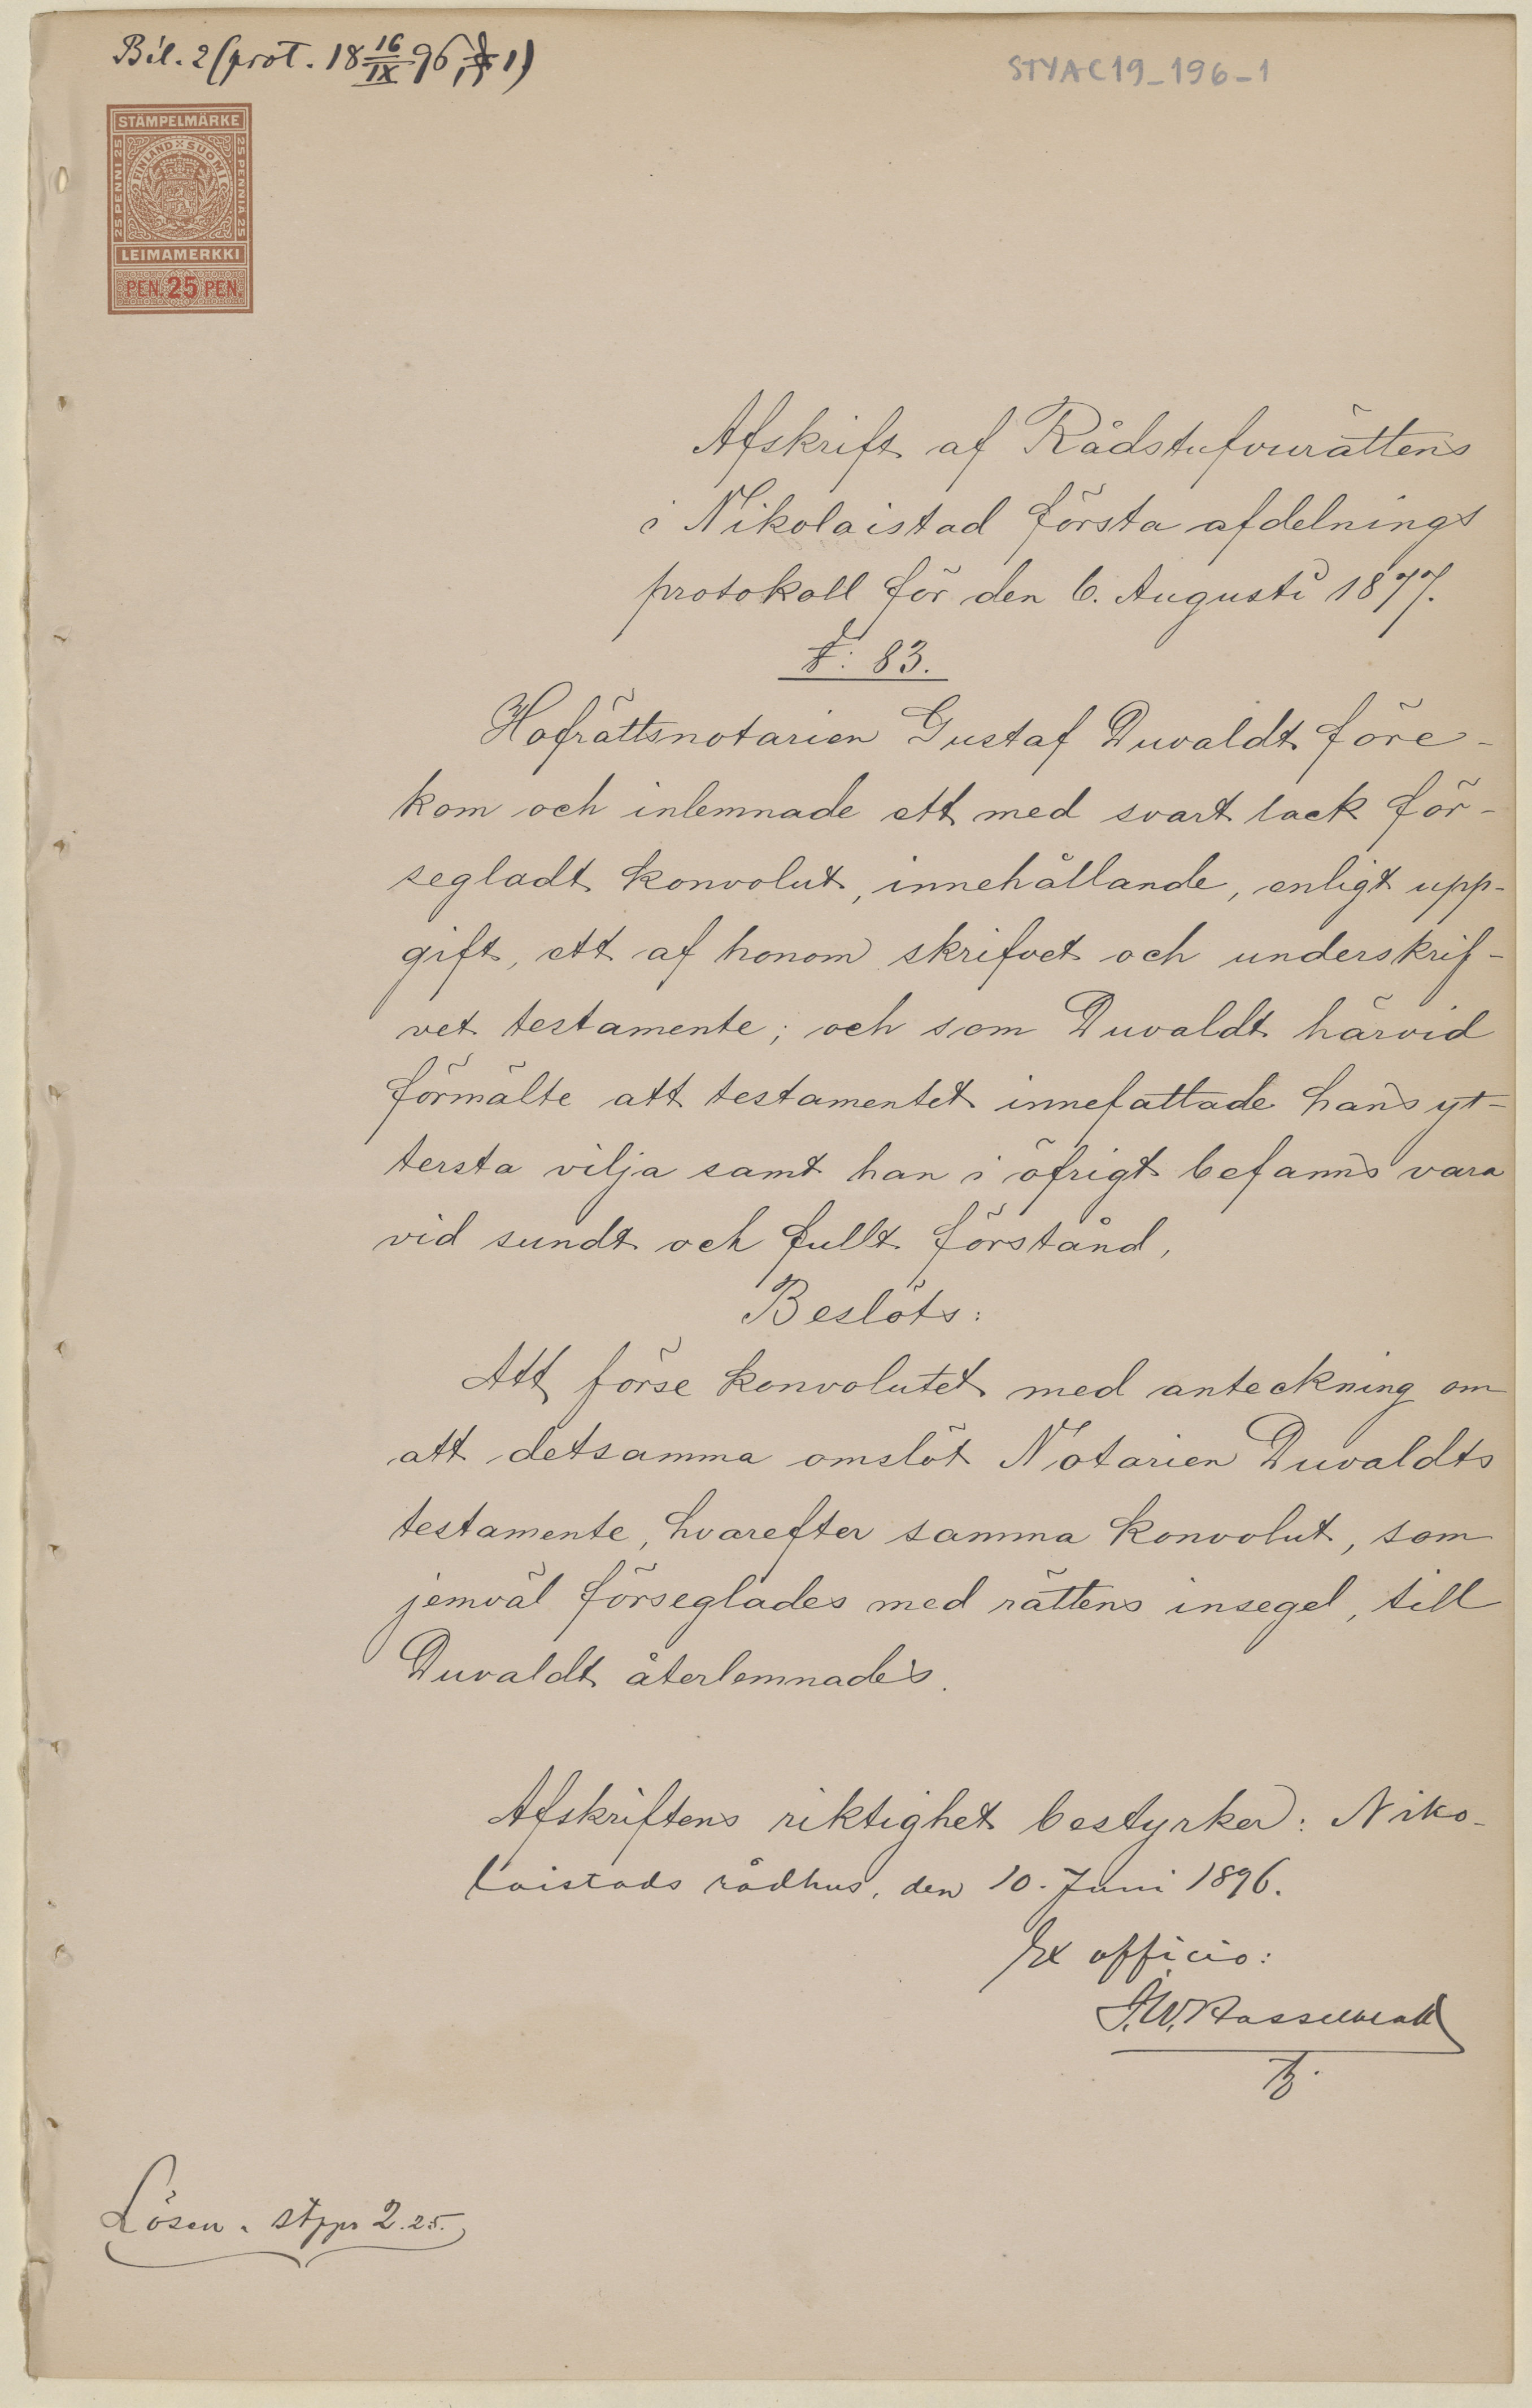 Bil. 2 (prot. 18 16/IX 96, § 1)
STYAC19_196_1
STÄMPELMÄRKE
25 PENNI 25
FINLAND SUOMI
25 PENNIÄ 25
LEIMAMERKKI
PEN. 25 PEN.
Afskrift af Rådstufvurättens
i Nikolaistad första afdelnings
protokoll för den 6. Augusti 1877.
§: 83.
Hofrättsnotarien Gustaf Duvaldt före-
kom och inlemnade ett med svart lack för-
segladt konvolut, innehållande, enligt upp-
gift, ett af honom skrifvet och underskrif-
vet testamente; och som Duvaldt härvid
förmälte att testamentet innefattade hans yt-
tersta vilja samt han i öfrigt befanns vara
vid sundt och fullt förstånd,
Beslöts:
Att förse konvolutet med anteckning om
att detsamma omslöt Notarien Duvaldts
testamente, hvarefter samma konvolut, som
jemväl förseglades med rättens insegel, till
Duvaldt återlemnades.
Afskriftens riktighet bestyrker: Niko-
laistads rådhus, den 10. Juni 1896.
Ex officio:
Lösen 2.25.